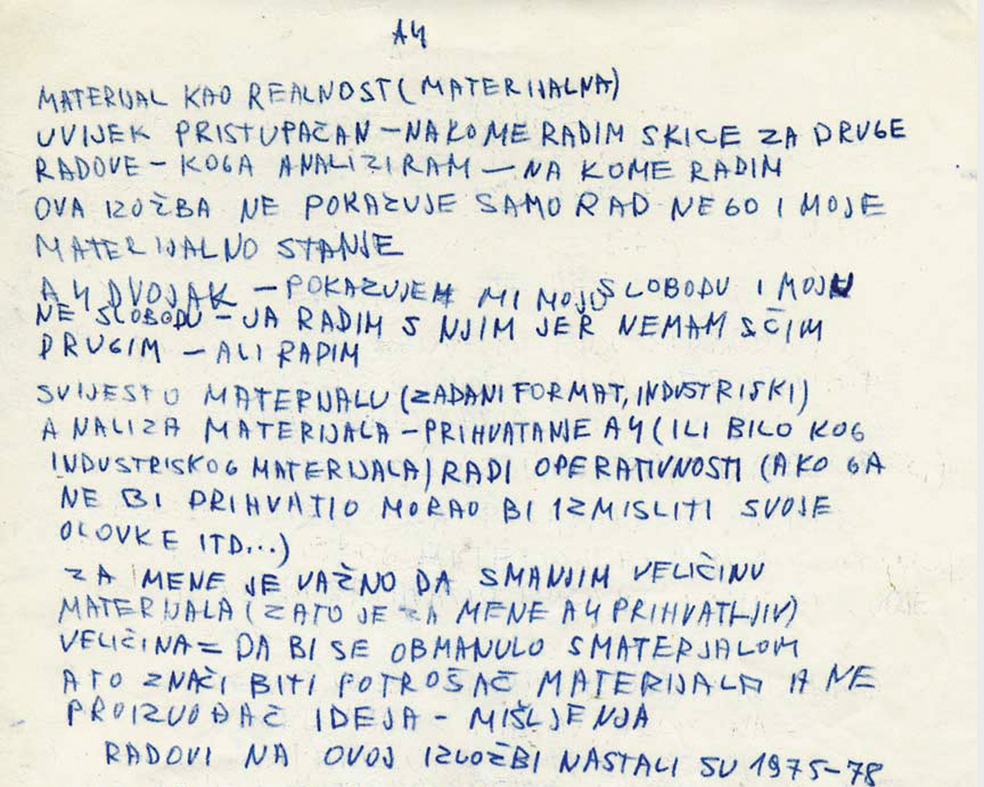 A4
MATERIJAL KAO REALNOST (MATERIJALNA)
UVIJEK PRISTUPAČAN – NA KOME RADIM SKICE ZA DRUGE
RADOVE – KOGA ANALIZIRAM – NA KOME RADIM
OVA IZOŽBA NE POKAZUJE SAMO RAD NEGO I MOJE
MATERIJALNO STANJE
A4 DVOJAK – POKAZUJE MI MOJU SLOBODU I MOJU
NE SLOBODU – JA RADIM S NJIM JER NEMAM S ČIM
DRUGIM – ALI RADIM
SVIJEST O MATERIJALU (ZADANI FORMAT, INDUSTRISKI)
ANALIZA MATERIJALA – PRIHVATANJE A4 (ILI BILO KOG
INDUSTRISKOG MATERIJALA) RADI OPERATIVNOSTI (AKO GA
NE BI PRIHVATIO MORAO BI IZMISLITI SVOJE
OLOVKE ITD...)
ZA MENE JE VAŽNO DA SMANJIM VELIČINU
MATERIJALA (ZATO JE ZA MENE A4 PRIHVATLJIV)
VELIČINA = DA BI SE OBMANULO S MATERJALOM
A TO ZNAČI BITI POTROŠAČ MATERIJALA A NE
PROIZVOĐAČ IDEJA – MIŠLJENJA
RADOVI NA OVOJ IZLOŽBI NASTALI SU 1975–78